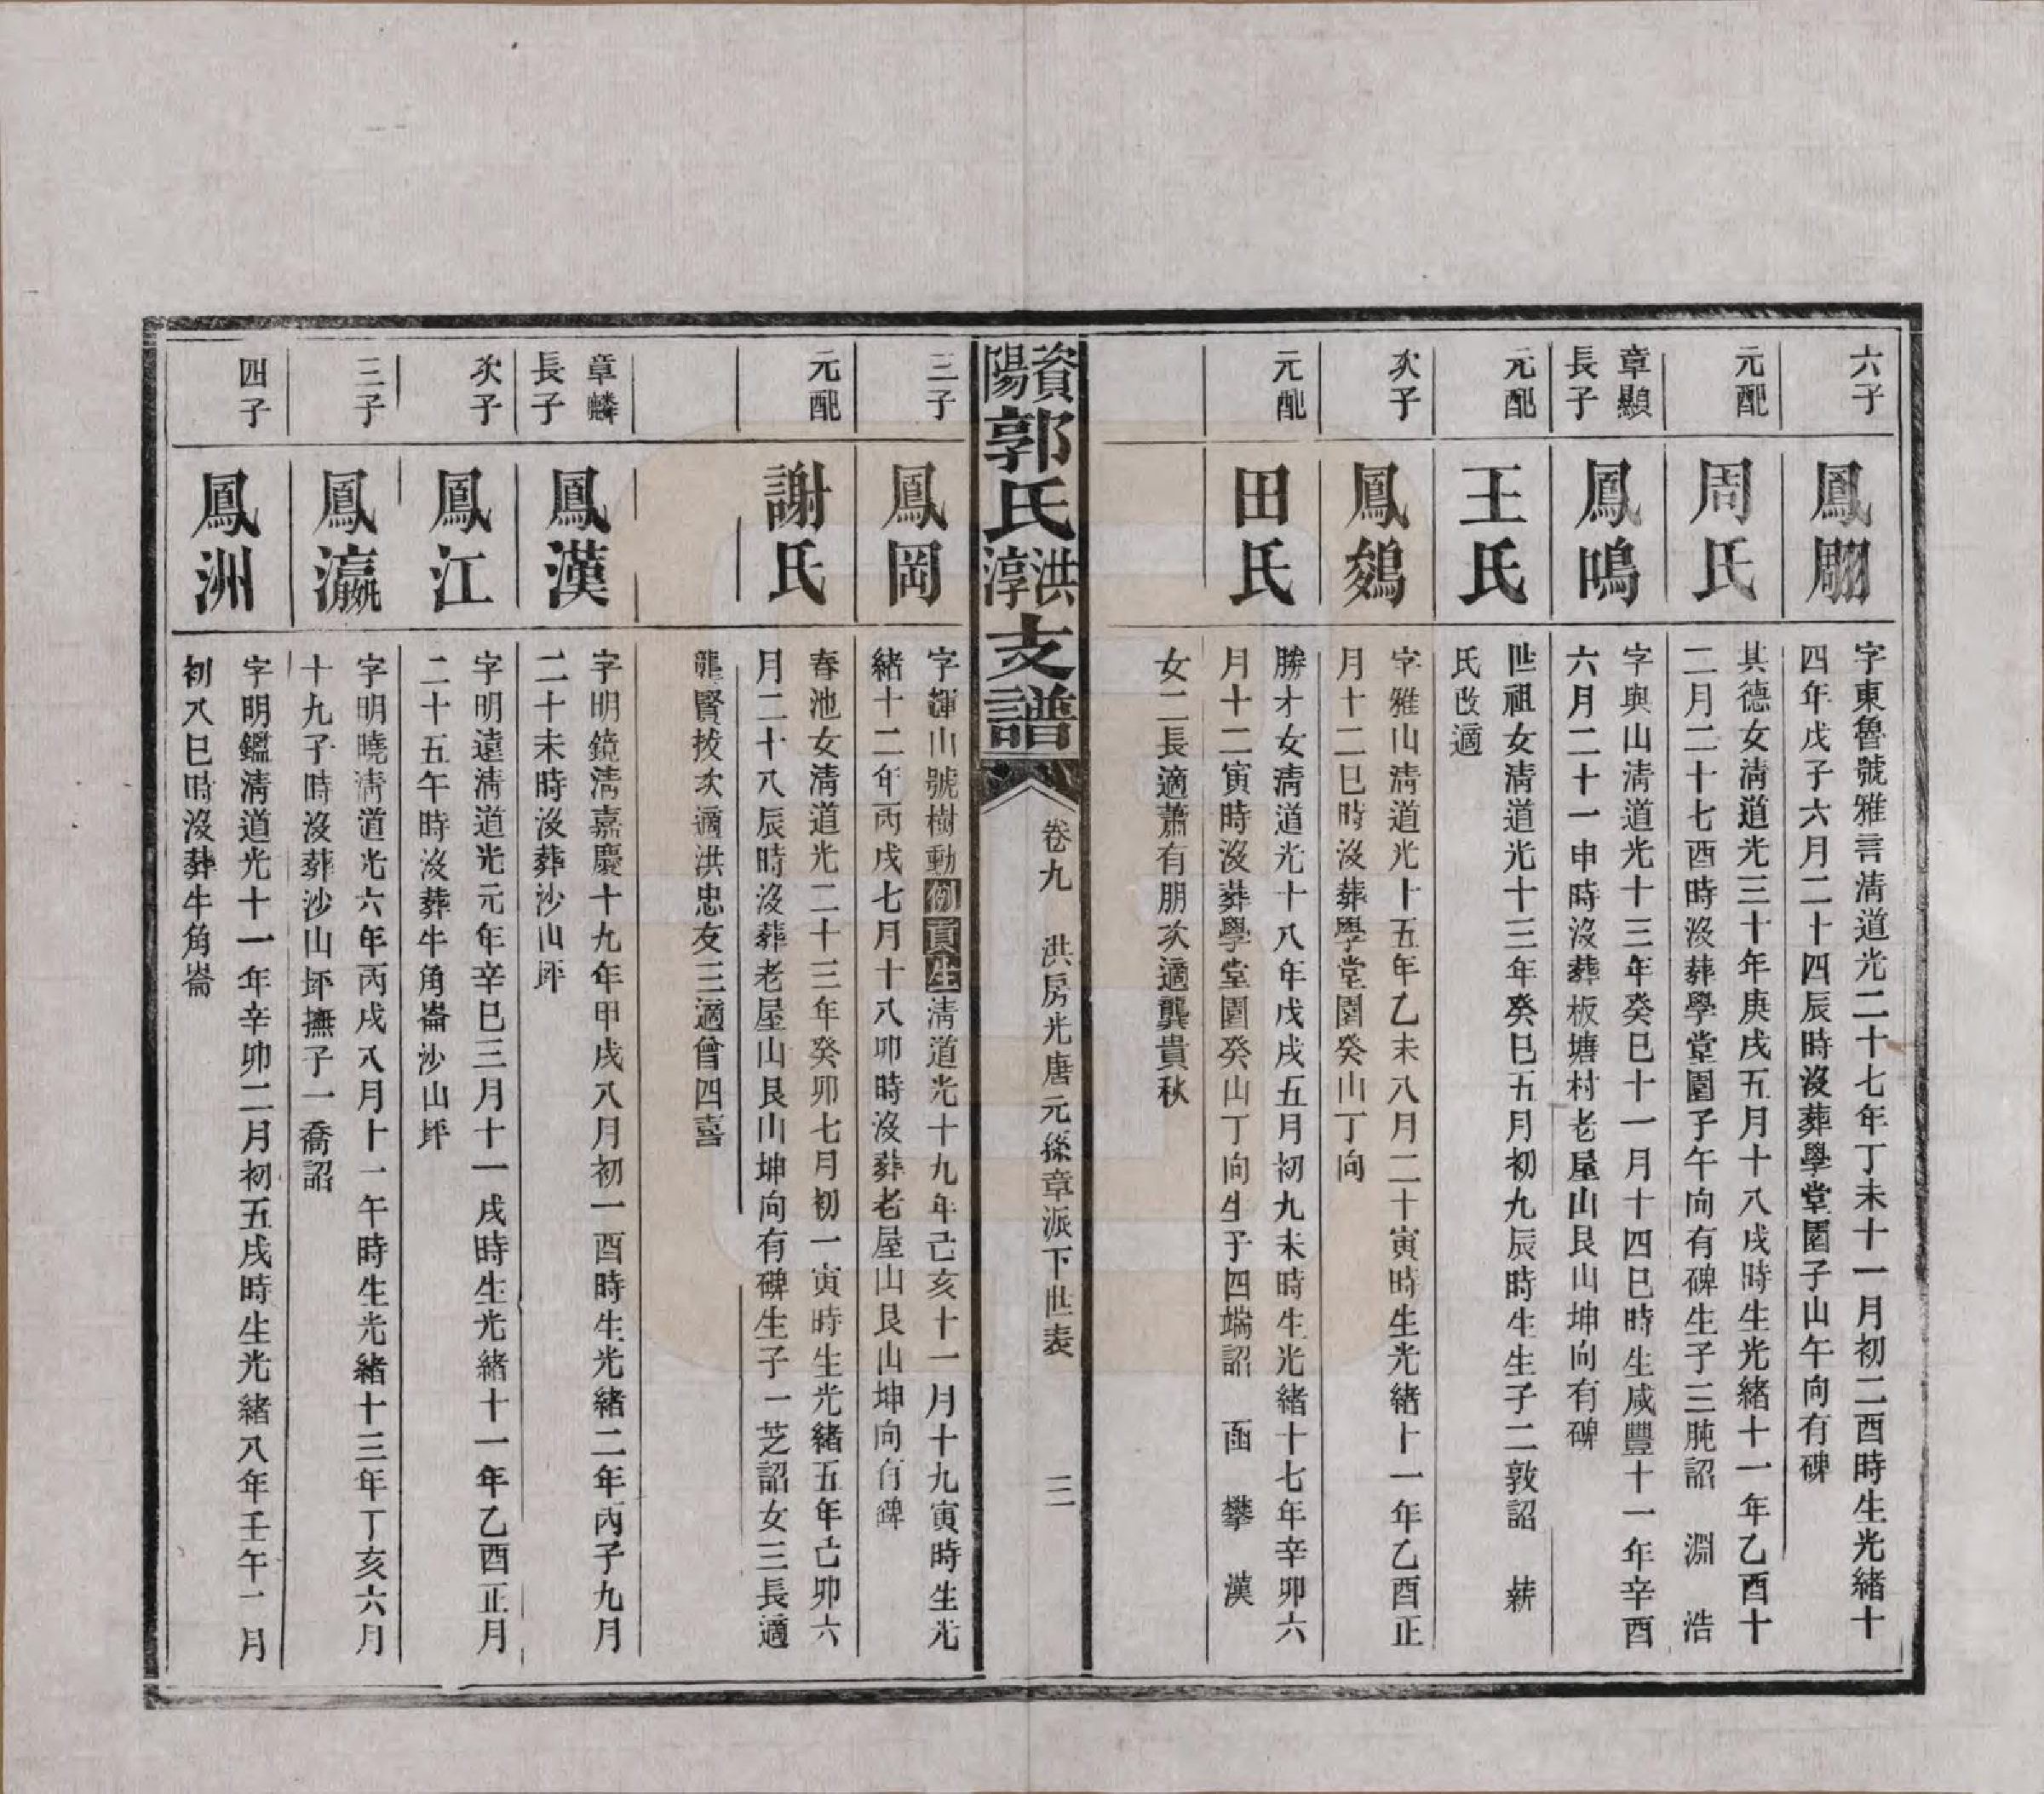 六子
鳳翮
字東魯號雅言淸道光二十七年丁未十一月初二酉時生光緒十
四年戊子六月二十四辰時沒葬學堂園子山午向有碑
元配
周氏
其德女淸道光三十年庚戌五月十八戌時生光緒十一年乙酉十
二月二十七酉時沒葬學堂園子午向有碑生子三肫詔 淵 浩
章顯
長子
鳳鳴
字興山淸道光十三年癸巳十一月十四巳時生咸豐十一年辛酉
六月二十一申時沒葬板塘村老屋山艮山坤向有碑
元配
王氏
世祖女淸道光十三年癸巳五月初九辰時生生子二敦詔 薪
氏改適
次子
鳳鵕
字雅山淸道光十五年乙未八月二十寅時生光緒十一年乙酉正
月十二巳時沒葬學堂園癸山丁向
元配
田氏
勝才女淸道光十八年戊戌五月初九未時生光緒十七年辛卯六
月十二寅時沒葬學堂園癸山丁向生子四端詔 函 攀 漢
女二長適蕭有朋次適龔貴秋
資陽郭氏洪淳支譜
卷九 洪房光唐元孫章派下世表 三
三子
鳳岡
字輝山號樹動例貢生淸道光十九年己亥十一月十九寅時生光
緒十二年丙戌七月十八卯時沒葬老屋山艮山坤向有碑
元配
謝氏
春池女淸道光二十三年癸卯七月初一寅時生光緒五年己卯六
月二十八辰時沒葬老屋山艮山坤向有碑生子一芝詔女三長適
龍賢拔次適洪忠友三適曾四喜
章麟
長子
鳳漢
字明鏡淸嘉慶十九年甲戌八月初一酉時生光緒二年丙子九月
二十未時沒葬沙山坪
次子
鳳江
字明遠淸道光元年辛巳三月十一戌時生光緒十一年乙酉正月
二十五午時沒葬牛角崙沙山坪
三子
鳳瀛
字明曉淸道光六年丙戌八月十一午時生光緒十三年丁亥六月
十九子時沒葬沙山坪撫子一喬詔
四子
鳳洲
字明鑑淸道光十一年辛卯二月初五戌時生光緒八年壬午二月
初八巳時沒葬牛角崙